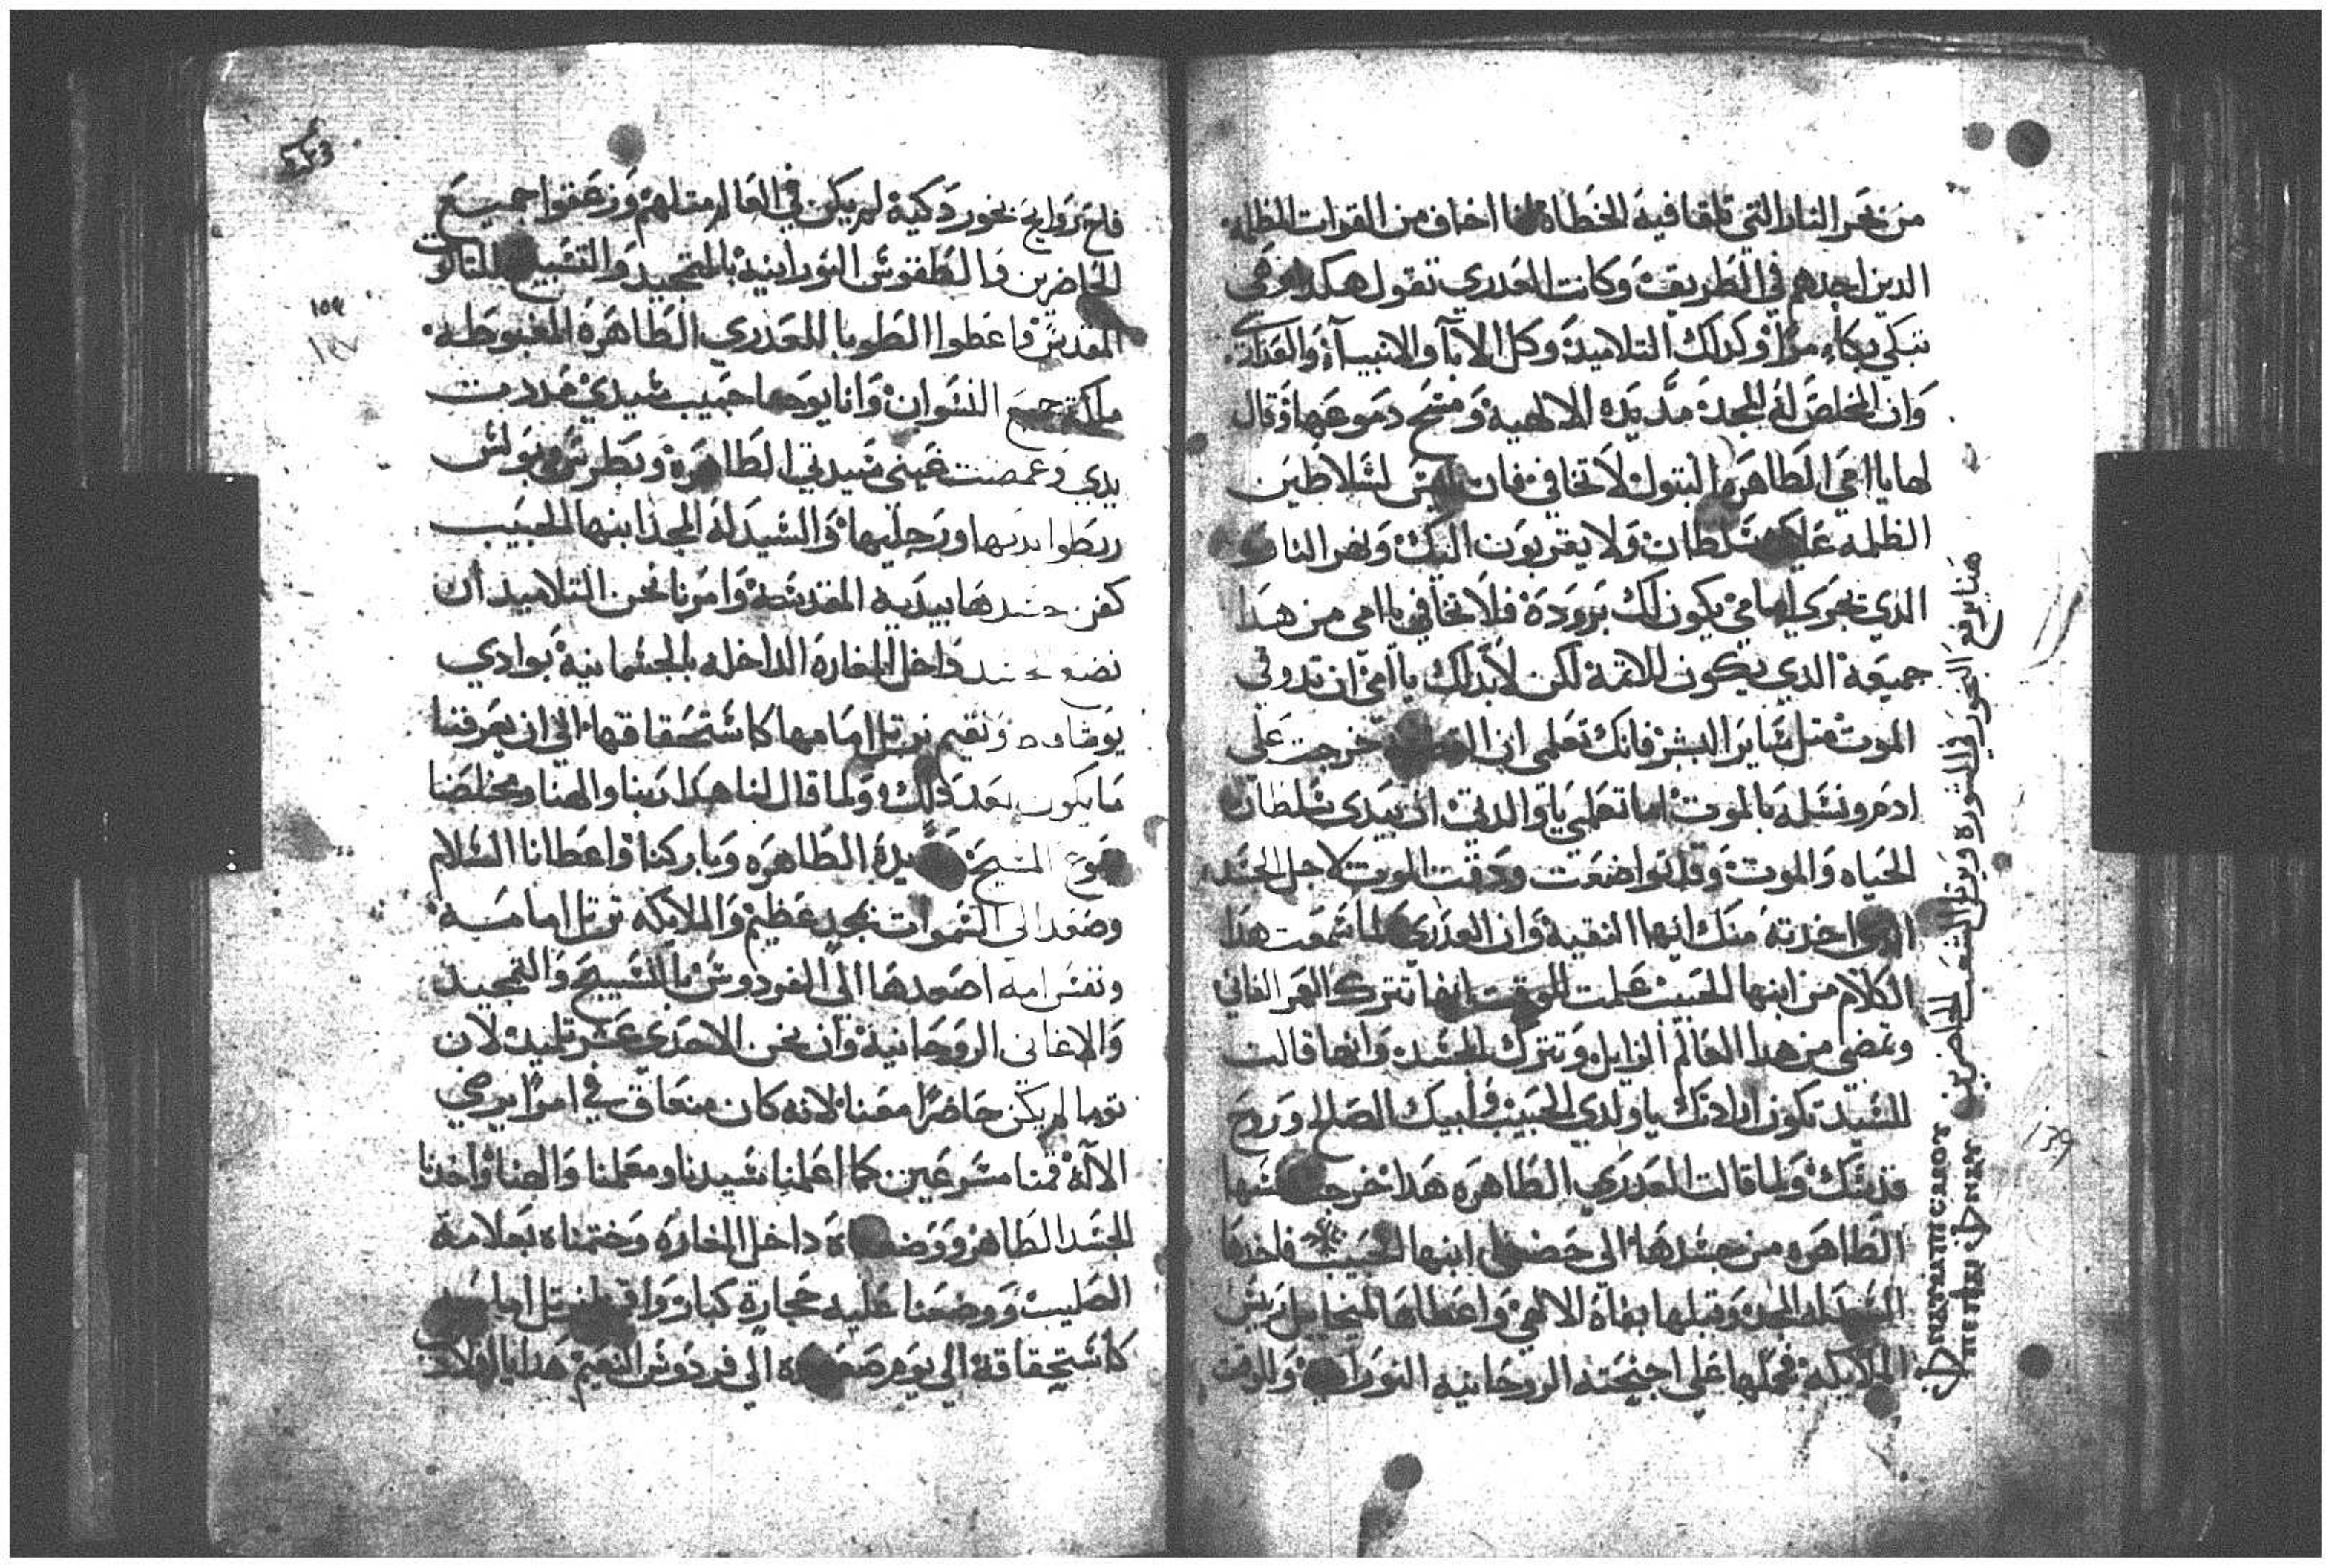 من نهر النار التي تلقا فيه الخطاه انا اخاف من القوات المظلمه
الدين اجدهم في الطريق وكانت العدري تقول هكدا وهي
تبكي بكاء مرا وكدلك التلاميد وكل الابا والانبيآء والعداري
وان المخلص له المجد مد يده الالهية ومسح دموعها وقال
لها يا امي الطاهره البتول لا تخافي فان ليس لسلاطين
الظلمه عليك سلطان ولا يقربون اليك ونهر النار
الدي تجري امامي يكون لك بروده فلا تخافي يا امي من هدا
جميعة الدي يكون للاتمة لكن لابد لك يا امي ان تدوقي
الموت متل ساير البشر فانك تعلمي ان خرجت على
ادم ونسله بالموت اما تعلمي يا والدتي ان بيدي سلطان
الحياه والموت وقد تواضعت ودقت الموت لاجل الجسد
الدي اخدته منك ايتها النقية وان العدري لما سمعت هدا
الكلام من ابنها الحبيب علمت الوقت انها تترك الفاني
وتمضي من هدا العالم الزايل وتترك الجسد وانها قالت
للسيد تكون ارادتك يا ولدي الحبيب وابيك الصالح وروح
قدسك ولما قالت العدري الطاهره هدا خرجت نفسها
الطاهره من جسدها الى حضن ابنها الحبيب فاخدها
السيد له المجد وقبلها بفاه الالهي واعطاها لميخاييل ريس
الملايكه فحملها على اجنحته الروحانيه النورانيه وللوقت
هنا يرفع البخور في الشوره ويرتل الشعب الحاضرين
فاح روايح بخور دكية لم يكن في العالم متلهم وزعقوا جميع
الحاضرين والطقوس النورانية بالتمجيد والتسبيح للتالوت
المقدس واعطوا الطوبا للعدري الطاهره المغبوطه
ملكة جميع النسوان وانا يوحنا حبيب سيدي مددت
يدي وغمضت عيني سيدتي الطاهره وبطرس وبولس
ربطوا يديها ورجليها والسيد له المجد ابنها الحبيب
كفن جسدها بيديه المقدسة وامرنا نحن التلاميد ان
نضع جسد داخل المغاره الداخله بالجسمانية بوادي
يوشافاط ونقيم نرتل امامها كاستحقاقها الى ان يعرفنا
ما يكون بعد دلك ولما قال لنا هكدا ربنا والهنا ومخلصنا
يسوع المسيح السيدة الطاهره وباركنا واعطانا السلام
وصعد الى السموات بمجد عظيم والملايكه ترتل امامه
ونفس امه اصعدها الى الفردوس بالتسبيح والتمجيد
والاغاني الروحانية وان نحن الاحدى عشر تلميد لان
توما لم يكن حاضرا معنا لانه كان متعاق في امرا يرضي
الآله قمنا مسرعين كما اعلمنا سيدنا ومعلمنا والهنا واخدنا
الجسد الطاهر ووضعناه داخل المغاره وختمناه بعلامة
الصليب ووضعنا عليه حجارة كبار واقمنا نرتل امامه
كاستحقاقه الى يوم صعوده الى فردوس النعيم هدا يا اولاد